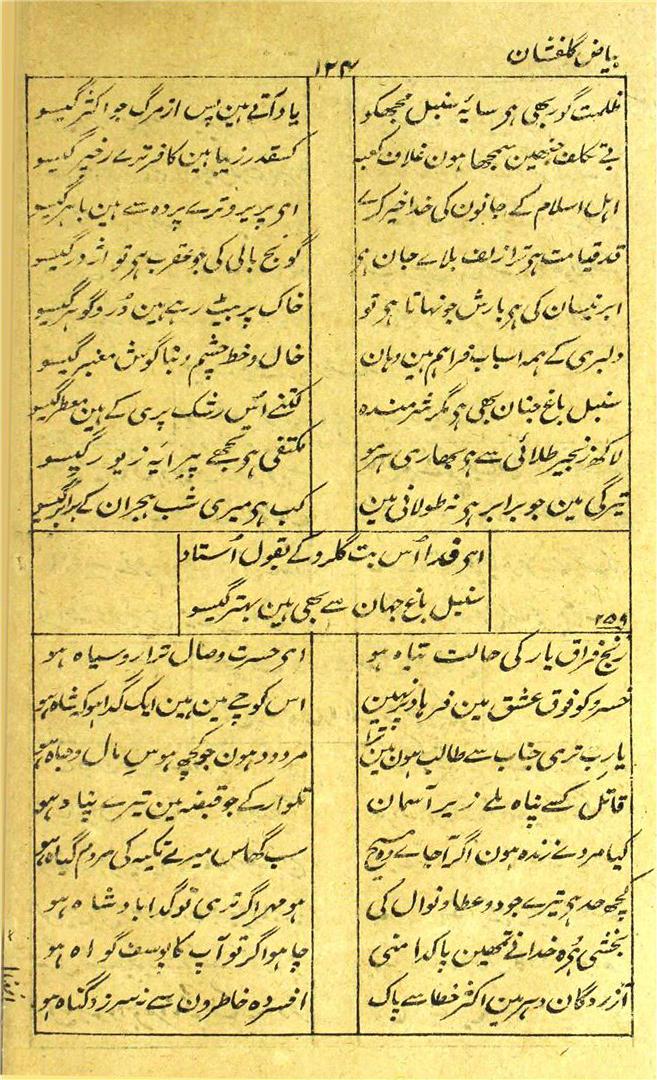 بیاض گلفشان
۱۲۴
ظلمت گور بھی ہے سایۂ سنبل مجھکو یاد آتے ہین پس از مرگ جو اکثر گیسو
بے تکلف جنھین سمجھا ہون غلاف کعبہ کسقدر زیبا ہین کافر ترے رخپر گیسو
اہل اسلام کے جانون کی خدا خیر کرے اے پریرو ترے پردہ سے ہین باہر گیسو
قد قیامت ہے ترا زلف بلاے جان ہے گونج بالی کی جو عقرب ہے تو اژدر گیسو
ابر نیسان کی ہے بارش جو نہاتا ہے تو خاک پر بیٹ رہے ہین در و گوہر گیسو
دلبری کے ہمہ اسباب فراہم ہین وہان خال و خط چشم و بناگوش معنبر گیسو
سنبل باغ جنان بھی ہے مگر شرمندہ کتنے اس رشک پری کے ہین معطر گیسو
لاکھ زنجیر طلائی سے ہے بھاری سر ہو مکتفی ہے تجھے پیرایۂ زیور گیسو
تیرگی مین جو برابر ہے نہ طولانی مین کب ہے میری شب ہجران کے برابر گیسو
اے فدا اُس بت گلرو کے بقول اُستاد
سنبل باغ جہان سے بھی ہین بہتر گیسو
۲۵۹
رنج فراق یار کی حالت تباہ ہو اے حسرت وصال ترا رو سیاہ ہو
خسرو کو فوق عشق مین فرہاد پر نہین اس کوچے مین ہین ایک گدا ہو کہ شاہ ہو
یا رب تری جناب سے طالب ہون مین ترا مردود ہون جو کچھ ہوس مال و جاہ ہو
قاتل کسے پناہ ملے زیر آسمان تلوار کے جو قبضہ مین تیرے پناہ ہو
کیا مردے زندہ ہون اگر آجاے وہ مسیح سب گھاس میرے تکیہ کی مردم گیاہ ہو
کچھ حد ہے تیرے جود و عطا و نوال کی ہو مہر اگر تری تو گدا بادشاہ ہو
بخشی ہے وہ خدا نے تمھین پاکدامنی چاہو اگر تو آپ کا یوسف گواہ ہو
آزردگان دہر ہین اکثر خطا سے پاک افسردہ خاطرون سے نہ سرزد گناہ ہو